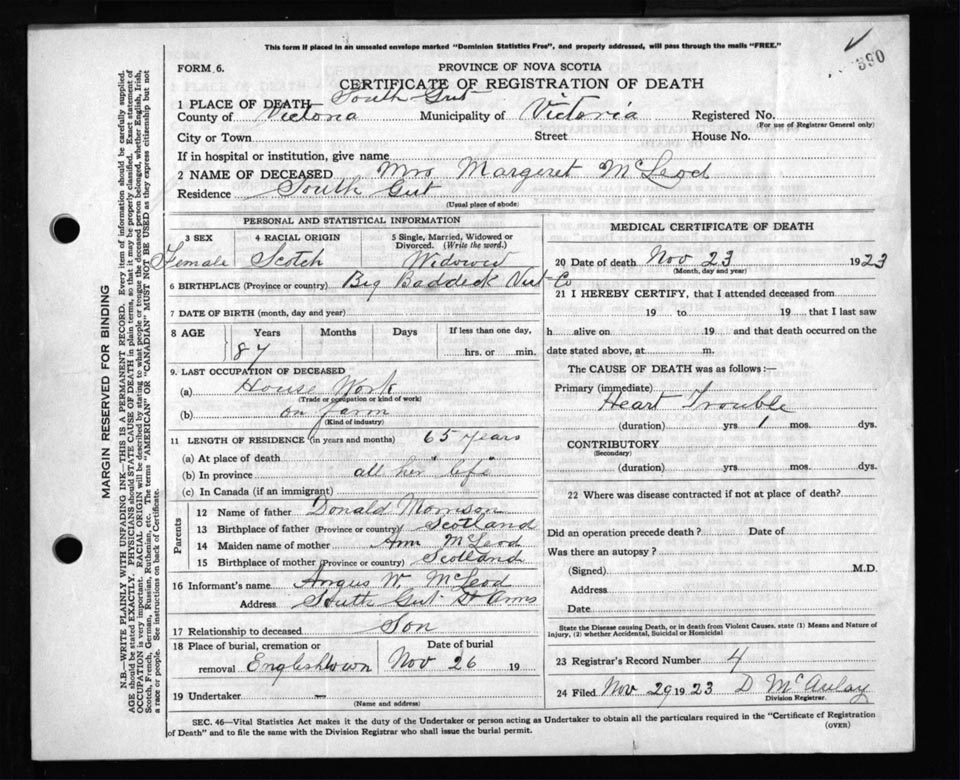 This form if placed in an unsealed envelope marked "Dominion Statistics Free", and properly addressed, will pass through the mails "FREE."
390
FORM 6.
PROVINCE OF NOVA SCOTIA
CERTIFICATE OF REGISTRATION OF DEATH
1 PLACE OF DEATH South Gut
County of Victoria Municipality of Victoria Registered No.
(For use of Registrar General only)
City or Town Street House No.
If in hospital or institution, give name
2 NAME OF DECEASED Mrs Margaret McLeod
Residence South Gut
(Usual place of abode)
PERSONAL AND STATISTICAL INFORMATION
3 SEX 4 RACIAL ORIGIN 5 Single, Married, Widowed or Divorced. (Write the word.)
Female Scotch Widowed
6 BIRTHPLACE (Province or country) Big Baddeck Vict Co
7 DATE OF BIRTH (month, day and year)
8 AGE Years Months Days If less than one day,
87 hrs. or min.
9. LAST OCCUPATION OF DECEASED
(a) House Work
(Trade or occupation or kind of work)
(b) on farm
(Kind of industry)
11 LENGTH OF RESIDENCE (in years and months) 65 years
(a) At place of death
(b) In province all her "life"
(c) In Canada (if an immigrant)
Parents
12 Name of father Donald Morrison
13 Birthplace of father (Province or country) Scotland
14 Maiden name of mother Ann McLeod
15 Birthplace of mother (Province or country) Scotland
16 Informant's name Angus W. McLeod
Address South Gut St Anns
17 Relationship to deceased Son
18 Place of burial, cremation or Date of burial
removal Englishtown Nov 26 19
19 Undertaker —
(Name and address)
MEDICAL CERTIFICATE OF DEATH
20 Date of death Nov 23 1923
(Month, day and year)
21 I HEREBY CERTIFY, that I attended deceased from
19 to 19 that I last saw
h alive on 19 and that death occurred on the
date stated above, at m.
The CAUSE OF DEATH was as follows:—
Primary (immediate)
Heart Trouble
(duration) yrs 1 mos. dys.
CONTRIBUTORY
(Secondary)
(duration) yrs. mos. dys.
22 Where was disease contracted if not at place of death?
Did an operation precede death? Date of
Was there an autopsy?
(Signed) M.D.
Address
Date
State the Disease causing Death, or in death from Violent Causes, state (1) Means and Nature of
Injury, (2) whether Accidental, Suicidal or Homicidal
23 Registrar's Record Number 4
24 Filed Nov 29 1923 D McAulay
Division Registrar.
SEC. 46—Vital Statistics Act makes it the duty of the Undertaker or person acting as Undertaker to obtain all the particulars required in the "Certificate of Registration
of Death" and to file the same with the Division Registrar who shall issue the burial permit.
(OVER)
MARGIN RESERVED FOR BINDING
N.B.—WRITE PLAINLY WITH UNFADING INK—THIS IS A PERMANENT RECORD. Every item of information should be carefully supplied.
AGE should be stated EXACTLY. PHYSICIANS should STATE CAUSE OF DEATH in plain terms, so that it may be properly classified. Exact statement of
OCCUPATION is very important. RACIAL ORIGIN will be described by stating to what people or tongue the deceased person belonged, whether English, Irish,
Scotch, French, German, Russian, Ruthenian, etc. The terms "AMERICAN" OR "CANADIAN" MUST NOT BE USED as they express citizenship but not
a race or people. See instructions on back of Certificate.